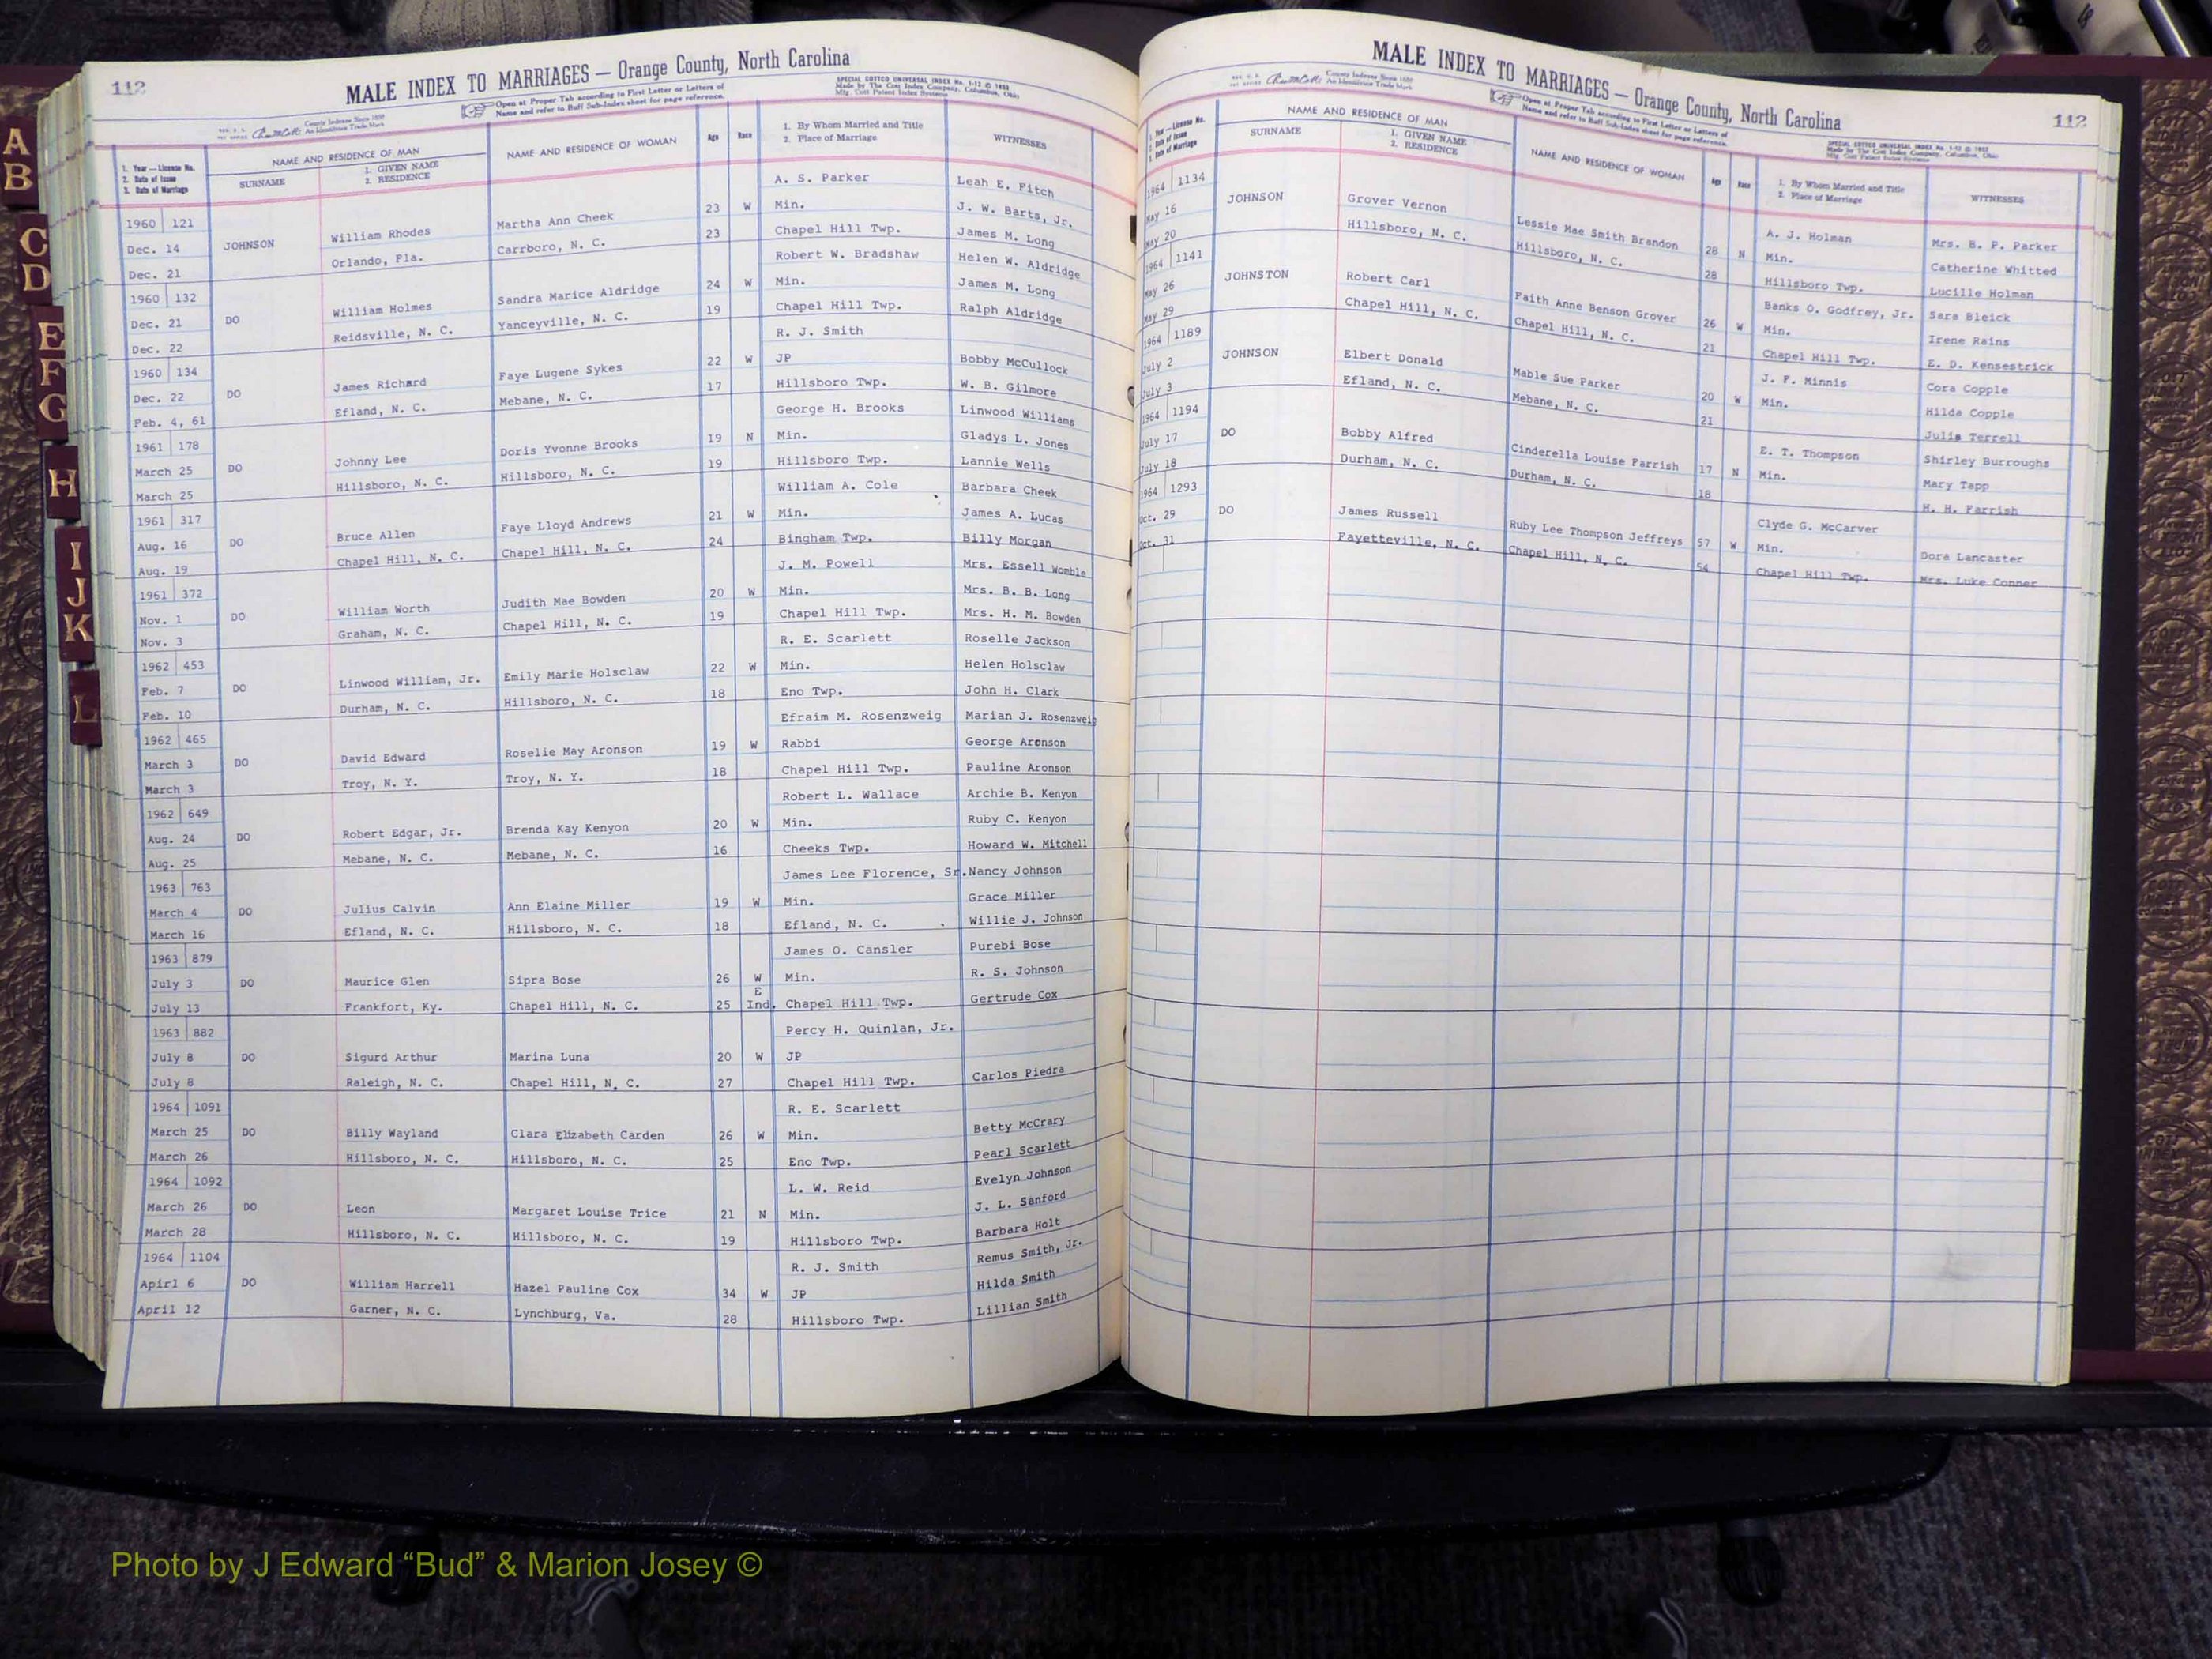 112
MALE INDEX TO MARRIAGES — Orange County, North Carolina
Open at Proper Tab according to First Letter or Letters of
Name and refer to Buff Sub-Index sheet for page reference.
SPECIAL COTTCO UNIVERSAL INDEX No. 1-12 © 1953
Made by The Cott Index Company, Columbus, Ohio
Mfg. Cott Patent Index Systems
County Indexes Since 1888
An Identification Trade Mark
1. Year — License No.
2. Date of Issue
3. Date of Marriage
NAME AND RESIDENCE OF MAN
SURNAME
1. GIVEN NAME
2. RESIDENCE
NAME AND RESIDENCE OF WOMAN
Age
Race
1. By Whom Married and Title
2. Place of Marriage
WITNESSES
A. S. Parker Leah E. Fitch
1960 121 William Rhodes Martha Ann Cheek 23 W Min. J. W. Barts, Jr.
Dec. 14 JOHNSON Orlando, Fla. Carrboro, N. C. 23 Chapel Hill Twp. James M. Long
Dec. 21 Robert W. Bradshaw Helen W. Aldridge
1960 132 William Holmes Sandra Marice Aldridge 24 W Min. James M. Long
Dec. 21 DO Reidsville, N. C. Yanceyville, N. C. 19 Chapel Hill Twp. Ralph Aldridge
Dec. 22 R. J. Smith
1960 134 James Richard Faye Lugene Sykes 22 W JP Bobby McCullock
Dec. 22 DO Efland, N. C. Mebane, N. C. 17 Hillsboro Twp. W. B. Gilmore
Feb. 4, 61 George H. Brooks Linwood Williams
1961 178 Johnny Lee Doris Yvonne Brooks 19 N Min. Gladys L. Jones
March 25 DO Hillsboro, N. C. Hillsboro, N. C. 19 Hillsboro Twp. Lannie Wells
March 25 William A. Cole Barbara Cheek
1961 317 Bruce Allen Faye Lloyd Andrews 21 W Min. James A. Lucas
Aug. 16 DO Chapel Hill, N. C. Chapel Hill, N. C. 24 Bingham Twp. Billy Morgan
Aug. 19 J. M. Powell Mrs. Essell Womble
1961 372 William Worth Judith Mae Bowden 20 W Min. Mrs. B. B. Long
Nov. 1 DO Graham, N. C. Chapel Hill, N. C. 19 Chapel Hill Twp. Mrs. H. M. Bowden
Nov. 3 R. E. Scarlett Roselle Jackson
1962 453 Linwood William, Jr. Emily Marie Holsclaw 22 W Min. Helen Holsclaw
Feb. 7 DO Durham, N. C. Hillsboro, N. C. 18 Eno Twp. John H. Clark
Feb. 10 Efraim M. Rosenzweig Marian J. Rosenzweig
1962 465 David Edward Roselie May Aronson 19 W Rabbi George Aronson
March 3 DO Troy, N. Y. Troy, N. Y. 18 Chapel Hill Twp. Pauline Aronson
March 3 Robert L. Wallace Archie B. Kenyon
1962 649 Robert Edgar, Jr. Brenda Kay Kenyon 20 W Min. Ruby C. Kenyon
Aug. 24 DO Mebane, N. C. Mebane, N. C. 16 Cheeks Twp. Howard W. Mitchell
Aug. 25 James Lee Florence, Sr. Nancy Johnson
1963 763 Julius Calvin Ann Elaine Miller 19 W Min. Grace Miller
March 4 DO Efland, N. C. Hillsboro, N. C. 18 Efland, N. C. Willie J. Johnson
March 16 James O. Cansler Purebi Bose
1963 879 Maurice Glen Sipra Bose 26 W Min. R. S. Johnson
July 3 DO Frankfort, Ky. Chapel Hill, N. C. 25 E Ind. Chapel Hill Twp. Gertrude Cox
July 13 Percy H. Quinlan, Jr.
1963 882 Sigurd Arthur Marina Luna 20 W JP
July 8 DO Raleigh, N. C. Chapel Hill, N. C. 27 Chapel Hill Twp. Carlos Piedra
July 8 R. E. Scarlett
1964 1091 Billy Wayland Clara Elizabeth Carden 26 W Min. Betty McCrary
March 25 DO Hillsboro, N. C. Hillsboro, N. C. 25 Eno Twp. Pearl Scarlett
March 26 L. W. Reid Evelyn Johnson
1964 1092 Leon Margaret Louise Trice 21 N Min. J. L. Sanford
March 26 DO Hillsboro, N. C. Hillsboro, N. C. 19 Hillsboro Twp. Barbara Holt
March 28 R. J. Smith Remus Smith, Jr.
1964 1104 William Harrell Hazel Pauline Cox 34 W JP Hilda Smith
Apirl 6 DO Garner, N. C. Lynchburg, Va. 28 Hillsboro Twp. Lillian Smith
April 12
112
MALE INDEX TO MARRIAGES — Orange County, North Carolina
County Indexes Since 1888
An Identification Trade Mark
Open at Proper Tab according to First Letter or Letters of
Name and refer to Buff Sub-Index sheet for page reference.
SPECIAL COTTCO UNIVERSAL INDEX No. 1-12 © 1953
Made by The Cott Index Company, Columbus, Ohio
Mfg. Cott Patent Index Systems
1. Year — License No.
2. Date of Issue
3. Date of Marriage
NAME AND RESIDENCE OF MAN
SURNAME
1. GIVEN NAME
2. RESIDENCE
NAME AND RESIDENCE OF WOMAN
Age
Race
1. By Whom Married and Title
2. Place of Marriage
WITNESSES
1964 1134 Grover Vernon Lessie Mae Smith Brandon 28 N A. J. Holman Mrs. B. P. Parker
May 16 JOHNSON Hillsboro, N. C. Hillsboro, N. C. 28 Min. Catherine Whitted
May 20 Hillsboro Twp. Lucille Holman
1964 1141 Robert Carl Faith Anne Benson Grover 26 W Banks O. Godfrey, Jr. Sara Bleick
May 26 JOHNSTON Chapel Hill, N. C. Chapel Hill, N. C. 21 Min. Irene Rains
May 29 Chapel Hill Twp. E. D. Kensestrick
1964 1189 Elbert Donald Mable Sue Parker 20 W J. F. Minnis Cora Copple
July 2 JOHNSON Efland, N. C. Mebane, N. C. 21 Min. Hilda Copple
July 3 Julia Terrell
1964 1194 Bobby Alfred Cinderella Louise Parrish 17 N E. T. Thompson Shirley Burroughs
July 17 DO Durham, N. C. Durham, N. C. 18 Min. Mary Tapp
July 18 H. H. Parrish
1964 1293 James Russell Ruby Lee Thompson Jeffreys 57 W Clyde G. McCarver
Oct. 29 DO Fayetteville, N. C. Chapel Hill, N. C. 54 Min. Dora Lancaster
Oct. 31 Chapel Hill Twp. Mrs. Luke Conner
A
B
C
D
E
F
G
H
I
J
K
L
Photo by J Edward “Bud” & Marion Josey ©